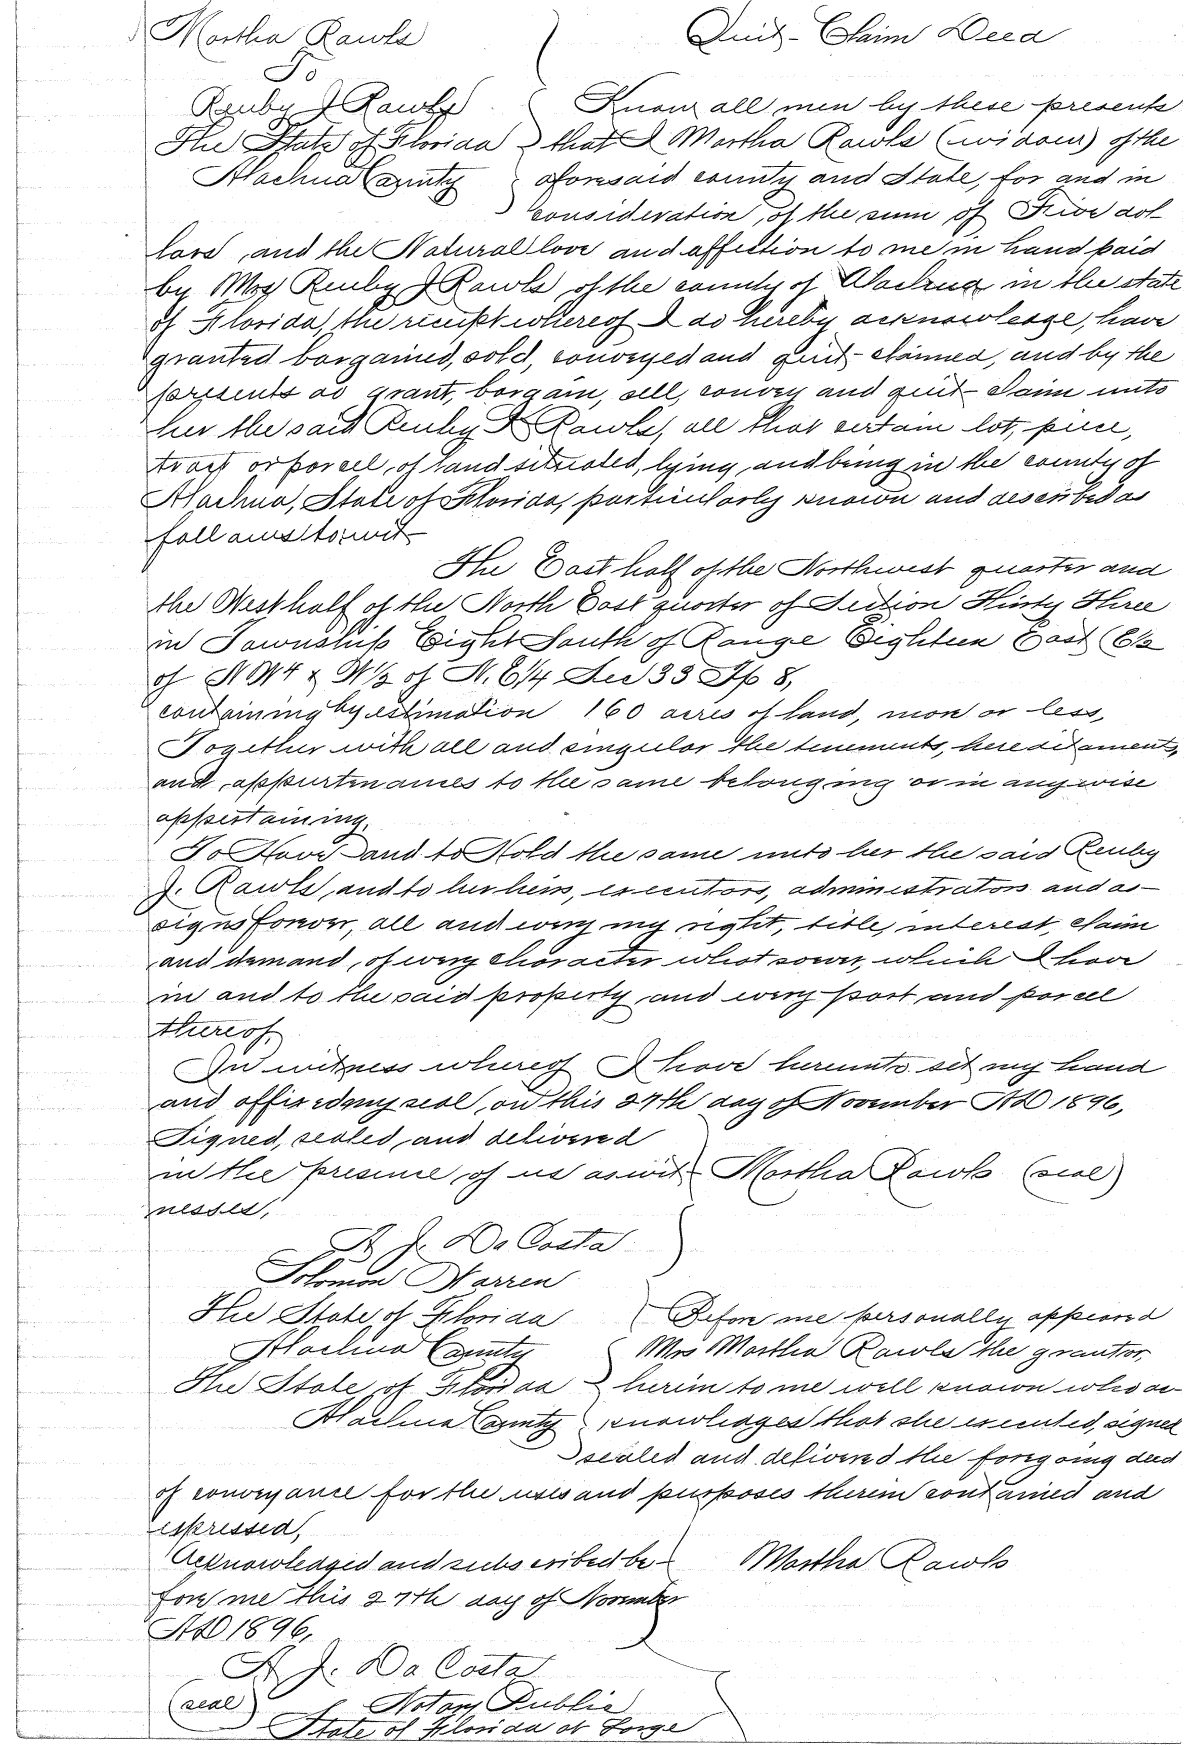 Martha Rawls
To
Renby J Rawls
The State of Florida
Alachua County
Quit-Claim Deed
Know all men by these presents
that I Martha Rawls (widow) of the
aforesaid county and State, for and in
consideration, of the sum of Five dol-
lars, and the Natural love and affection to me in hand paid
by Mrs Renby J Rawls, of the county of Alachua in the state
of Florida, the receipt whereof I do hereby acknowledge, have
granted bargained, sold, conveyed and quit-claimed, and by the
presents do grant, bargain, sell, convey and quit-claim unto
her the said Renby J Rawls, all that certain lot, piece,
tract or parcel, of land situated, lying, and being in the county of
Alachua, State of Florida, particularly known and described as
follows to, wit-
The East half of the Northwest quarter and
the West half of the North East quarter of Section Thirty Three
in Township Eight South of Range Eighteen East (E½
of N W 4 & W½ of N. E¼ Sec 33 Tp 8,
containing by estimation 160 acres of land, more or less,
Together with all and singular the tenements, hereditaments,
and appurtenances to the same belonging or in anywise
appertaining,
To Have and to Hold the same unto her the said Renby
J. Rawls, and to her heirs, executors, administrators and as-
signs forever, all and every my right, title, interest, claim
and demand, of every character whatsoever, which I have
in and to the said property and every part and parcel
thereof,
In witness whereof I have hereunto set my hand
and affixed my seal, on this 27th day of November AD 1896,
Signed, sealed, and delivered
in the presence of us as wit- Martha Rawls (seal)
nesses,
A J. Da Costa
Solomon Warren
The State of Florida
Alachua County
The State of Florida
Alachua County
Before me personally appeared
Mrs Martha Rawls the grantor,
herein to me well known who ac-
knowledges that she executed, signed
sealed and delivered the foregoing deed
of conveyance for the uses and purposes therein contained and
expressed,
Acknowledged and subscribed be- Martha Rawls
fore me this 27th day of November
AD 1896,
A J. Da Costa
(seal) Notary Public
State of Florida at Large